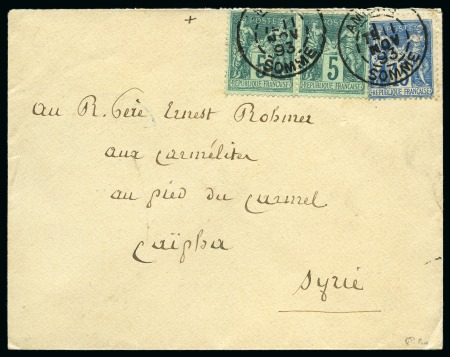 POSTES
5
5
REPUBLIQUE FRANÇAISE
REPUBLIQUE FRANÇAISE
REPUBLIQUE FRANÇAISE
11
NOV
93
SOMME
11
NOV
93
SOMME
au R. Père Ernest Rohmer
aux carmélites
au pied du Carmel
Caïpha
Syrie